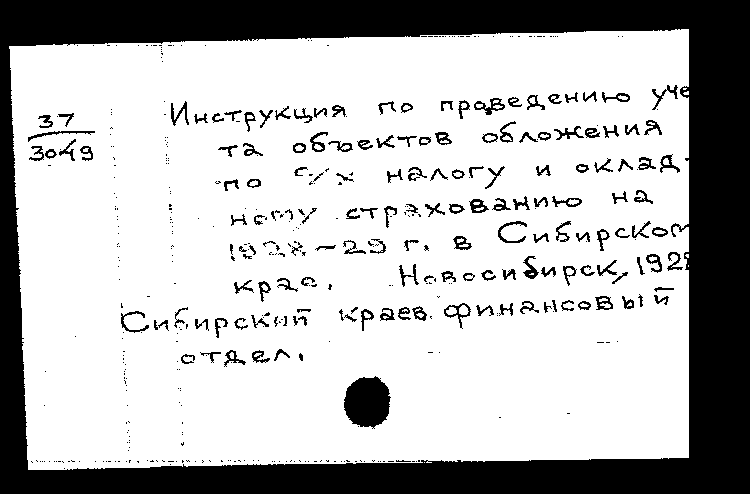 37
3049
Инструкция по проведению уче
та объектов обложения
по с/х налогу и оклад-
ному страхованию на
1928-29 г. в Сибирском
крае. Новосибирск, 1928
Сибирский краев. финансовый
отдел.